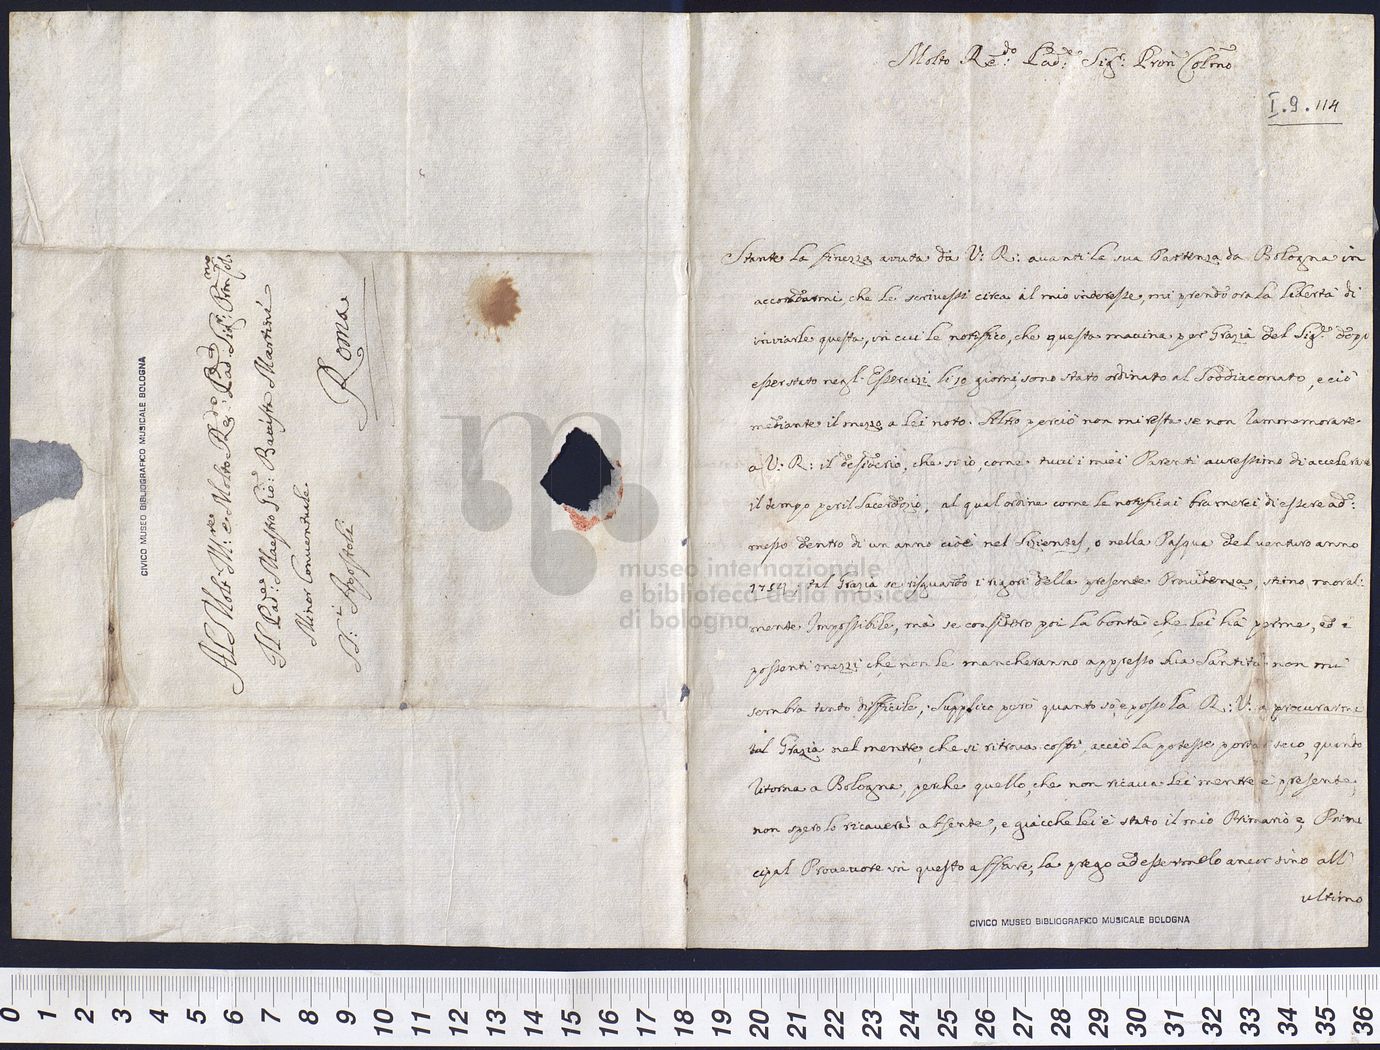 Al Molt' Ill.re e Molto Re.do Pad. Sig.r Pron Col.mo
Il Pad.re Maestro Gio: Batista Martini
Minor Conventuale
SS.ti Apostoli
Roma
CIVICO MUSEO BIBLIOGRAFICO MUSICALE BOLOGNA
museo internazionale
e biblioteca della musica
di bologna
Molto Re.do Pad.e Sig.r Pron Colmo
I.9.114
Stante la finezza avuta da V: R: avanti le sua Partenza da Bologna in
accordarmi, che Lei scrivessi circa il mio interesse, mi prendo ora la libertà di
inviarle questa, in cui le notifico, che questa matina per Grazia del Sig.re dopo
esser stato negl' Essercizi li 10 giorni, sono stato ordinato al Soddiaconato, e ciò
mediante il mezzo a Lei noto. Altro perciò non mi resta se non rammemorare
a V: R: il desiderio, che sì io, come tutti i miei Parenti avressimo di accelerare
il tempo per il Sacerdozio, al qual ordine come le notificai bramerei di essere ad:
messo dentro di un anno cioè nel Sizientes, o nella Pasqua del venturo anno
tal Grazia se risguardo i rigori della presente Providenza, stimo moral:
mente Impossibile, mà se considero poi la bontà che Lei hà per me, ed i
possenti mezzi che non le mancheranno appresso Sua Santità non mi
sembra tanto difficile, Supplico però quanto sò, e posso la R: V: a procurarmi
tal Grazia nel mentre, che si ritrova costì, acciò la potesse portar seco, quando
ritorna a Bologna, perche quello, che non ricava Lei mentre è presente,
non spero lo ricaverà absente, e giacche Lei è stato il mio Primario e Prin:
cipal Promotore in questo affare, la prego ad essermelo ancor sino all'
ultimo
CIVICO MUSEO BIBLIOGRAFICO MUSICALE BOLOGNA
0 1 2 3 4 5 6 7 8 9 10 11 12 13 14 15 16 17 18 19 20 21 22 23 24 25 26 27 28 29 30 31 32 33 34 35 36